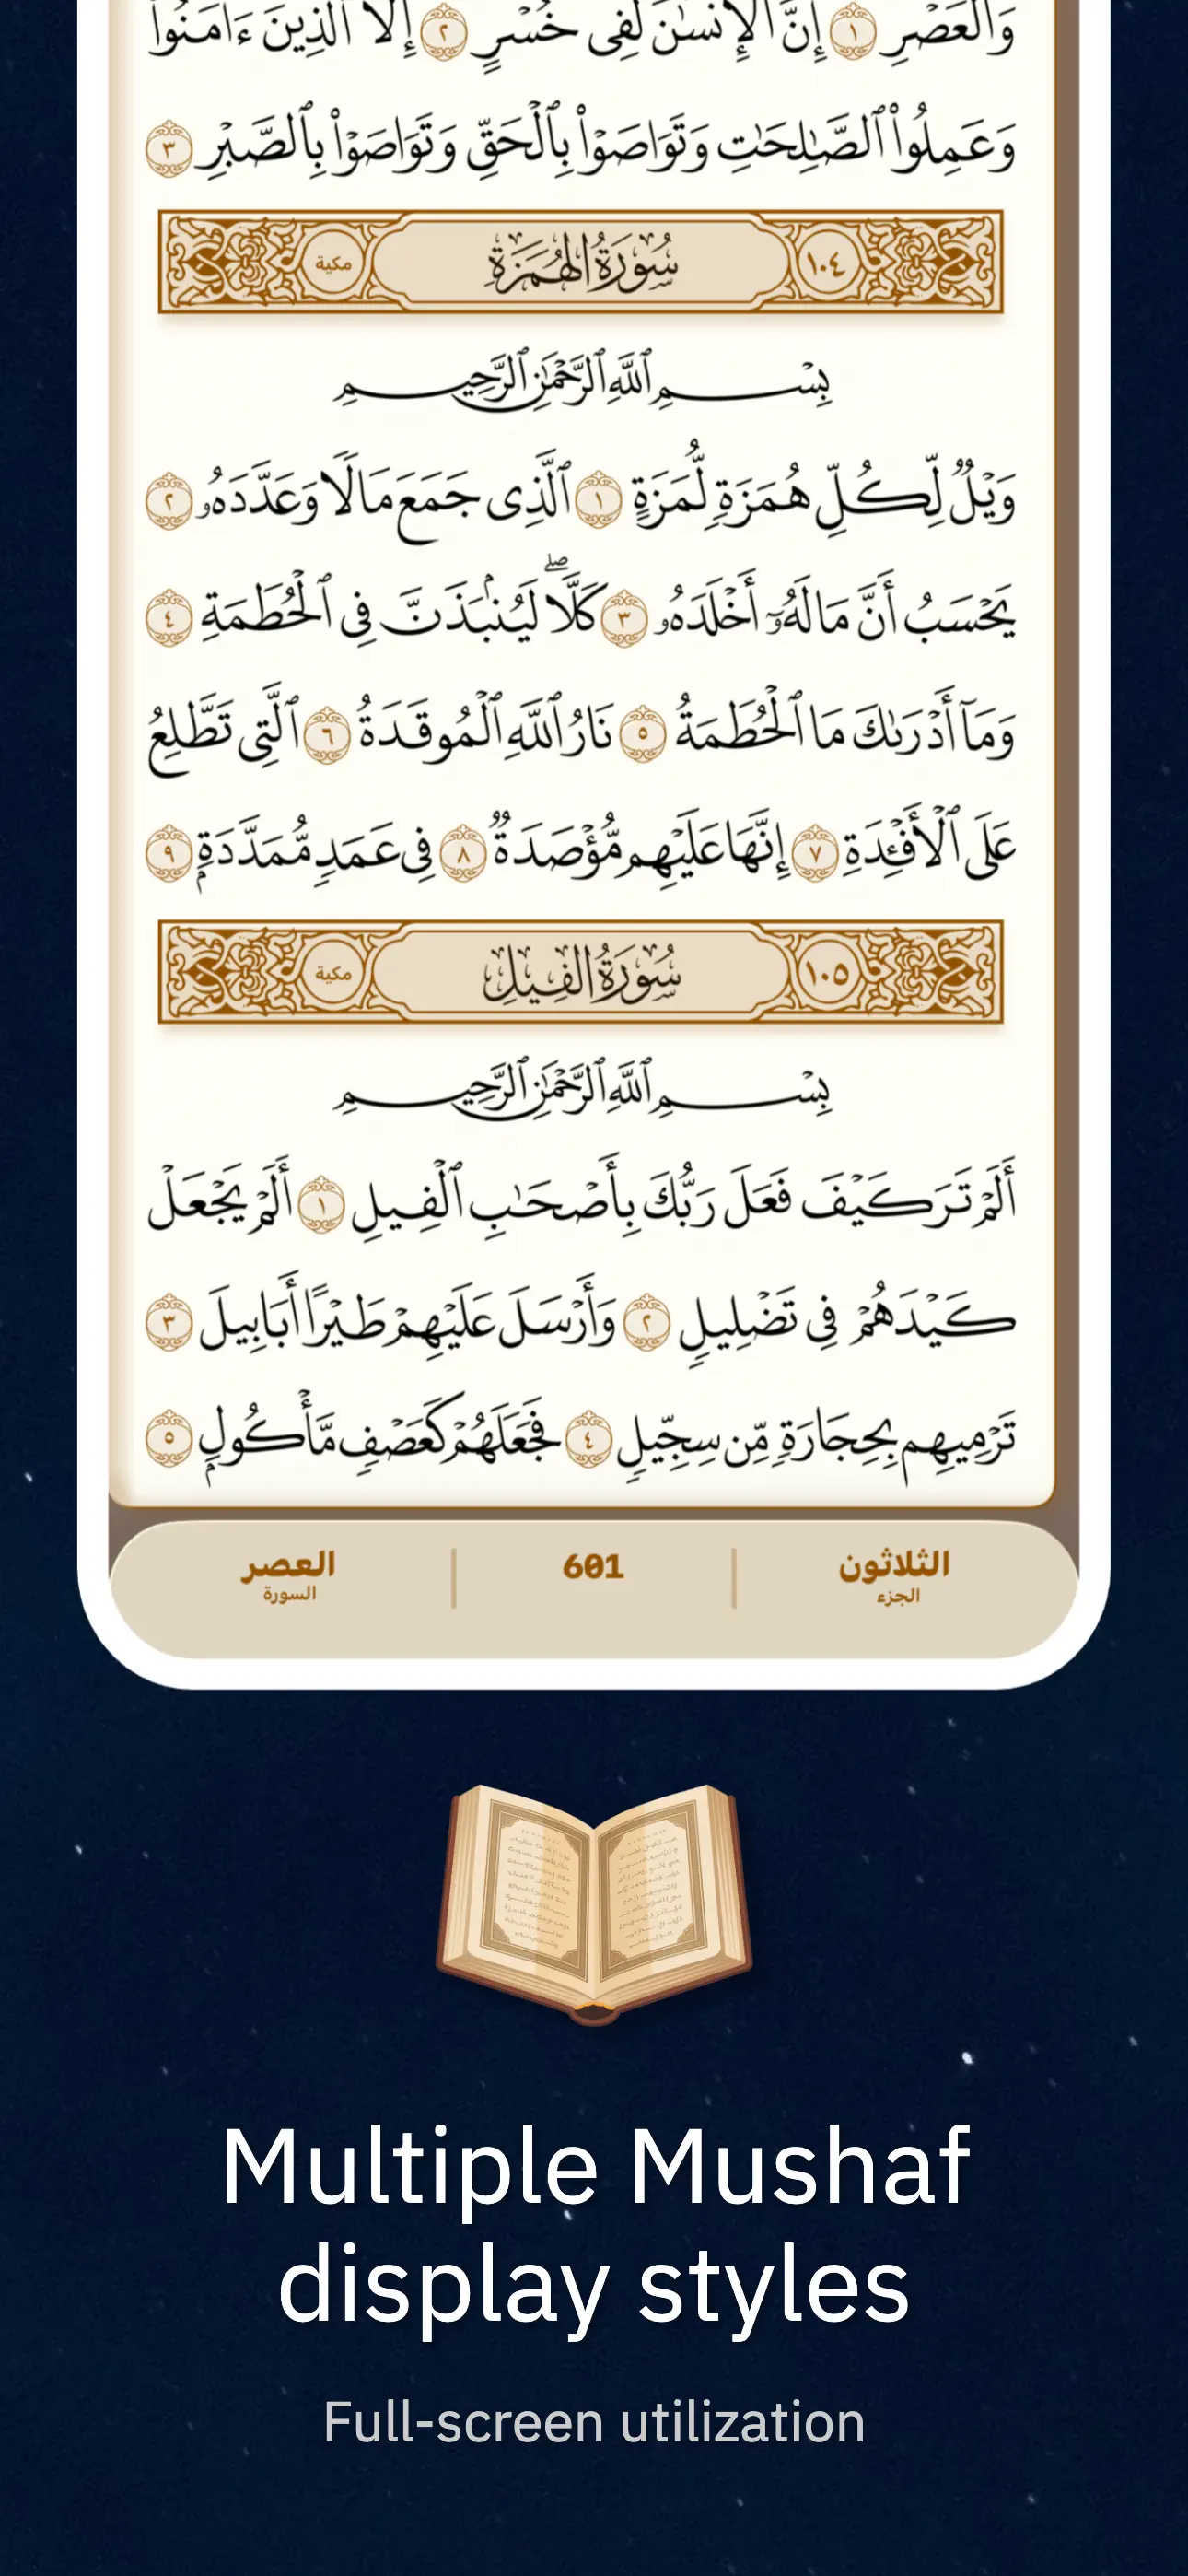 وَٱلْعَصْرِ ١ إِنَّ ٱلْإِنسَـٰنَ لَفِى خُسْرٍ ٢ إِلَّا ٱلَّذِينَ ءَامَنُوا۟
وَعَمِلُوا۟ ٱلصَّـٰلِحَـٰتِ وَتَوَاصَوْا۟ بِٱلْحَقِّ وَتَوَاصَوْا۟ بِٱلصَّبْرِ ٣
١٠٤ سُورَةُ الهُمَزَةِ مكية
بِسْمِ ٱللَّهِ ٱلرَّحْمَـٰنِ ٱلرَّحِيمِ
وَيْلٌ لِّكُلِّ هُمَزَةٍ لُّمَزَةٍ ١ ٱلَّذِى جَمَعَ مَالًا وَعَدَّدَهُۥ ٢
يَحْسَبُ أَنَّ مَالَهُۥٓ أَخْلَدَهُۥ ٣ كَلَّا ۖ لَيُنۢبَذَنَّ فِى ٱلْحُطَمَةِ ٤
وَمَآ أَدْرَىٰكَ مَا ٱلْحُطَمَةُ ٥ نَارُ ٱللَّهِ ٱلْمُوقَدَةُ ٦ ٱلَّتِى تَطَّلِعُ
عَلَى ٱلْأَفْـِٔدَةِ ٧ إِنَّهَا عَلَيْهِم مُّؤْصَدَةٌ ٨ فِى عَمَدٍ مُّمَدَّدَةٍۭ ٩
١٠٥ سُورَةُ الفِيلِ مكية
بِسْمِ ٱللَّهِ ٱلرَّحْمَـٰنِ ٱلرَّحِيمِ
أَلَمْ تَرَ كَيْفَ فَعَلَ رَبُّكَ بِأَصْحَـٰبِ ٱلْفِيلِ ١ أَلَمْ يَجْعَلْ
كَيْدَهُمْ فِى تَضْلِيلٍ ٢ وَأَرْسَلَ عَلَيْهِمْ طَيْرًا أَبَابِيلَ ٣
تَرْمِيهِم بِحِجَارَةٍ مِّن سِجِّيلٍ ٤ فَجَعَلَهُمْ كَعَصْفٍ مَّأْكُولٍۭ ٥
الثلاثون 601 العصر
الجزء السورة
Multiple Mushaf
display styles
Full-screen utilization